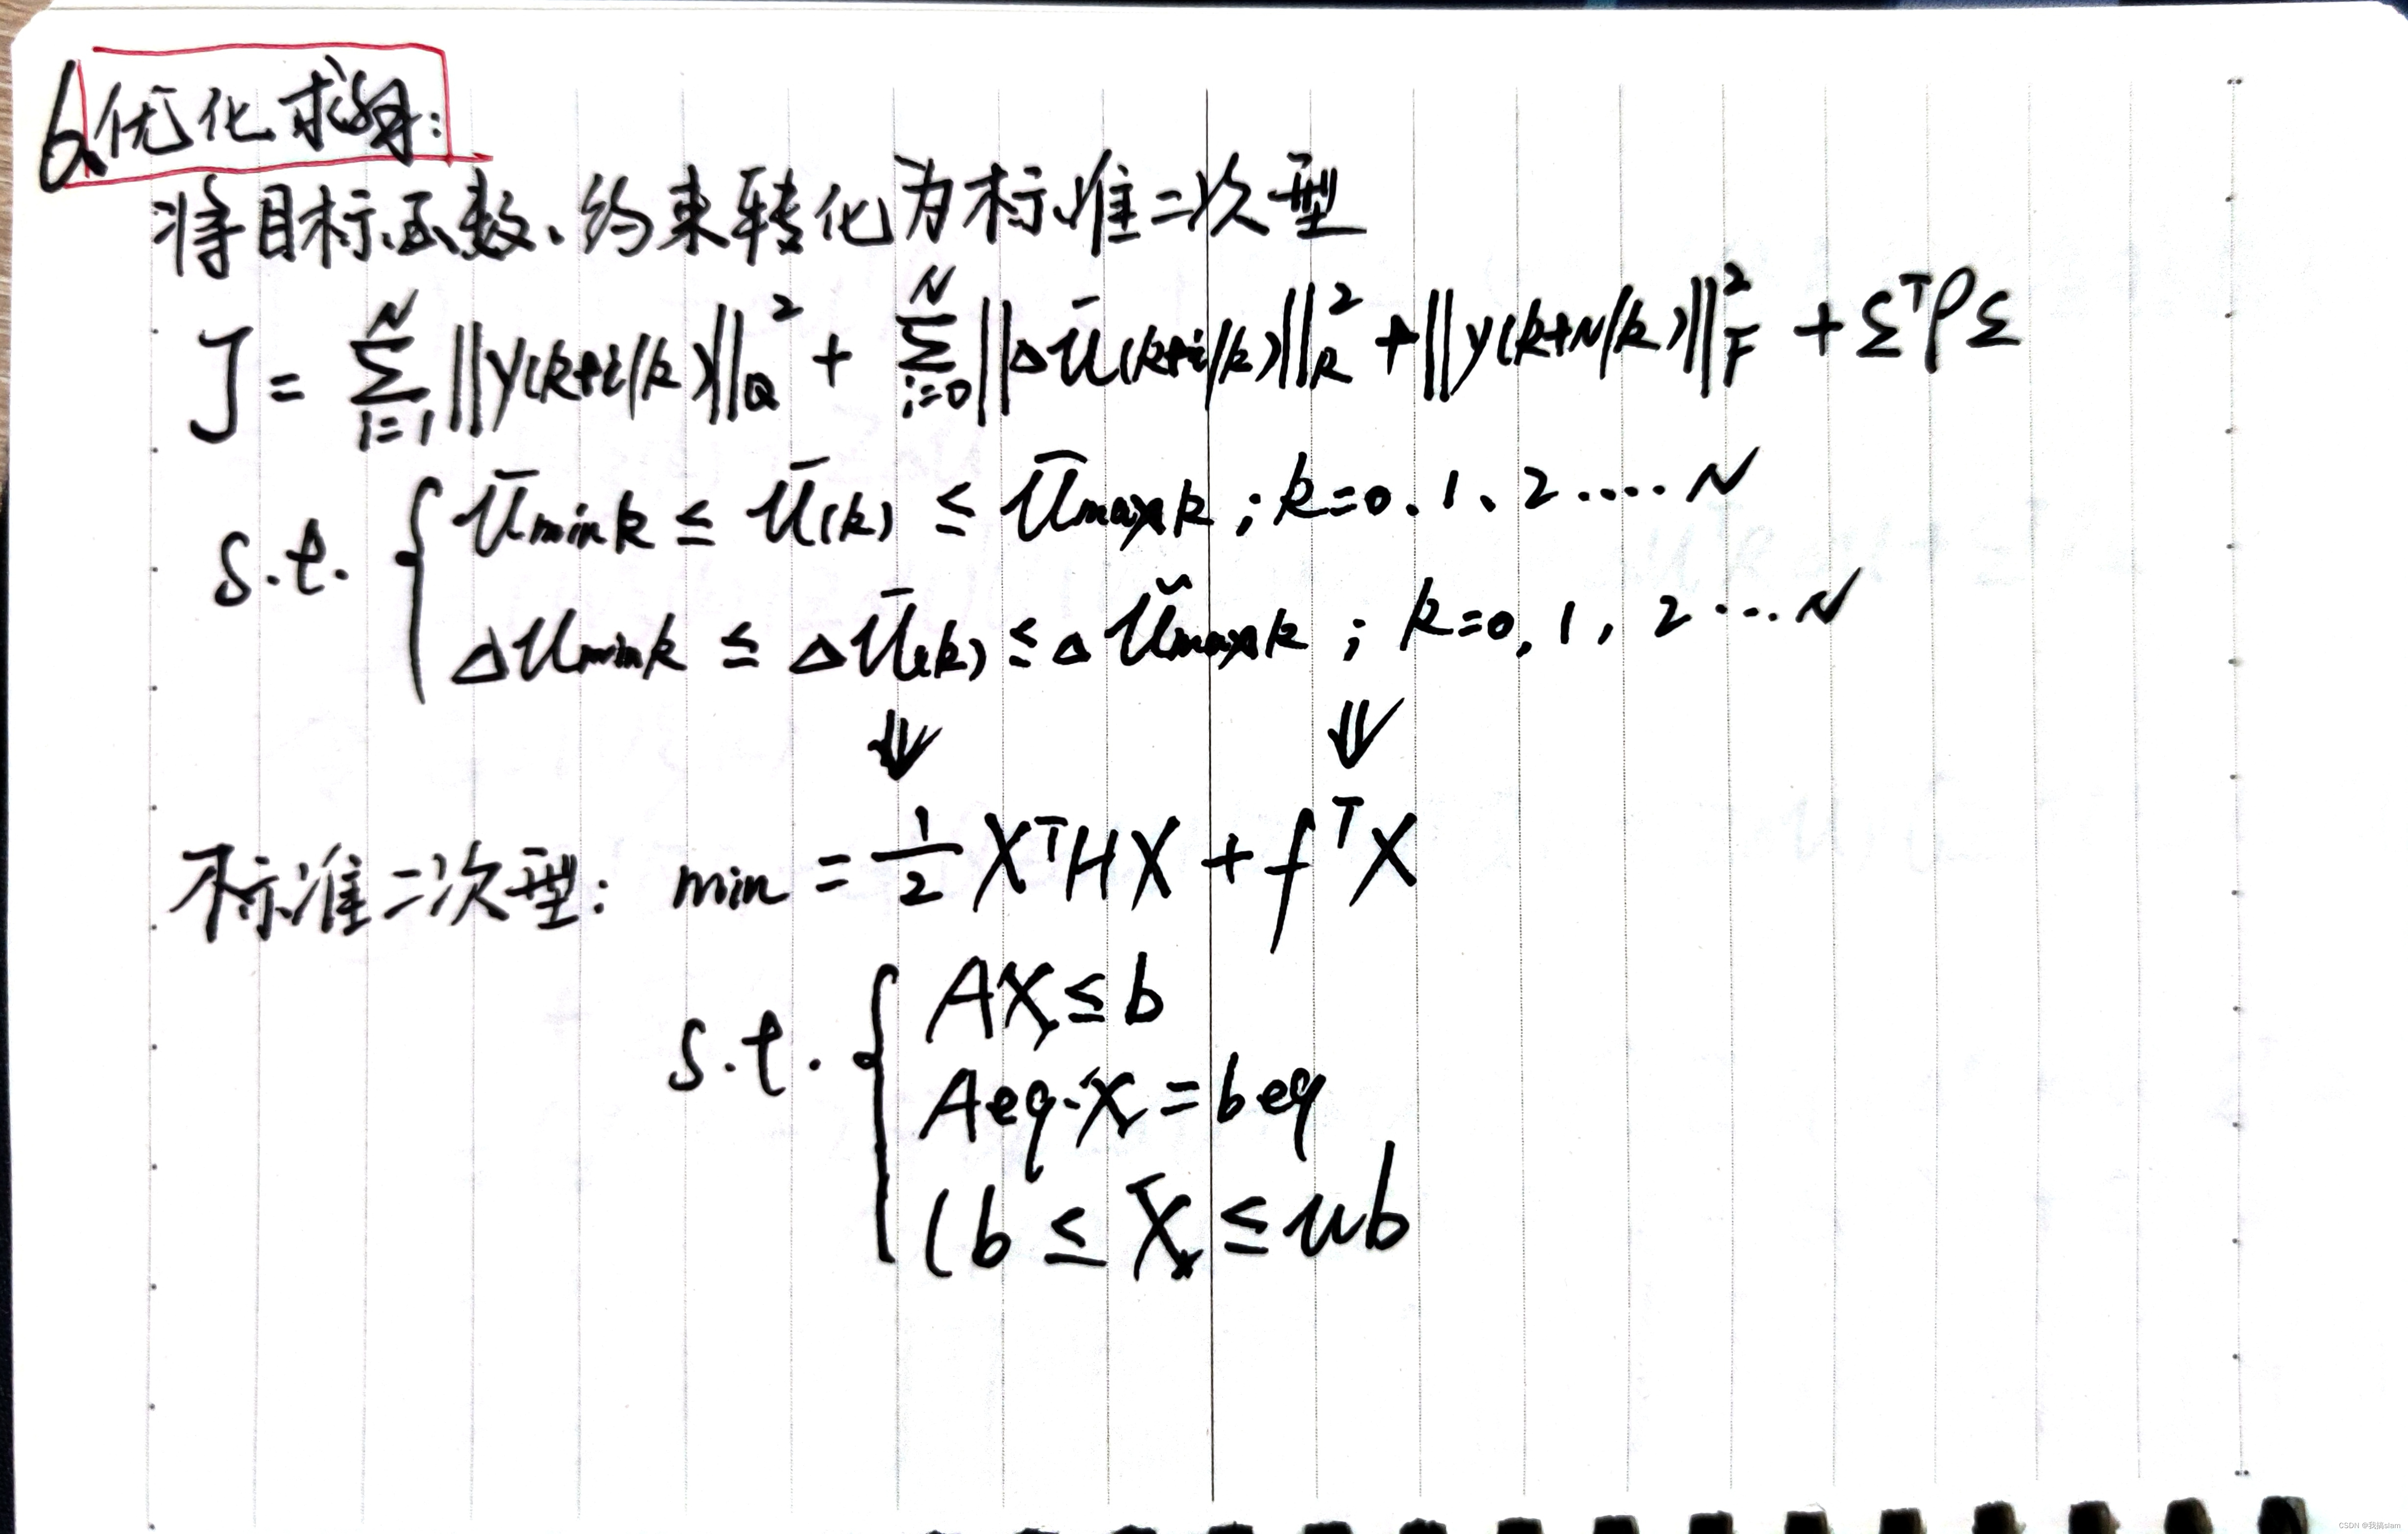 6、优化求解:
将目标函数、约束转化为标准二次型
J = \sum_{i=1}^{N} ||y(k+i/k)||_Q^2 + \sum_{i=0}^{N} ||Δū(k+i/k)||_R^2 + ||y(k+N/k)||_F^2 + Σ^T ρ Σ
s.t. { ūmink ≤ ū(k) ≤ ūmaxk ; k=0、1、2....N
Δumink ≤ Δū(k) ≤ Δūmaxk ; k=0, 1, 2...N
⇓ ⇓
标准二次型: min = \frac{1}{2} X^T H X + f^T X
s.t. { AX ≤ b
Aeq·X = beq
lb ≤ X ≤ ub
CSDN @我搞slam